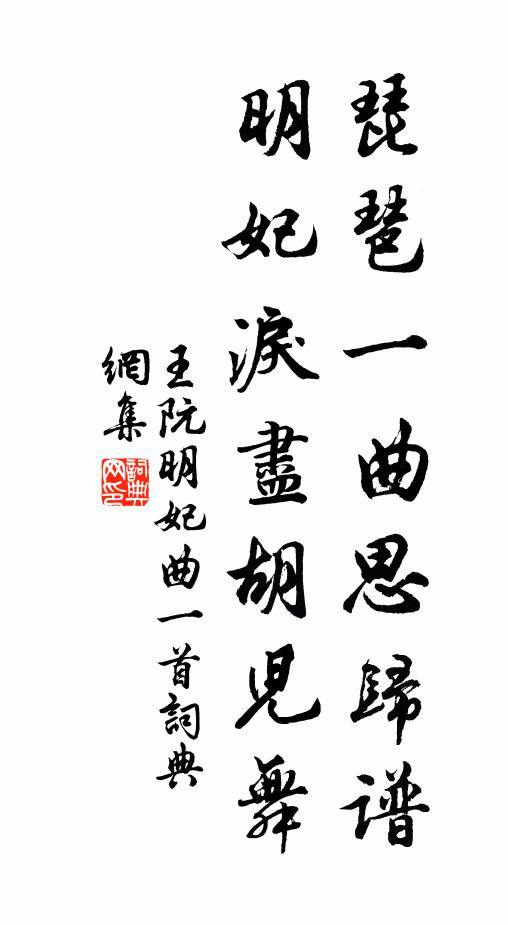 琵琶一曲思歸譜
明妃淚盡胡兒舞
王阮明妃曲一首詞典
網集
詞典
网印